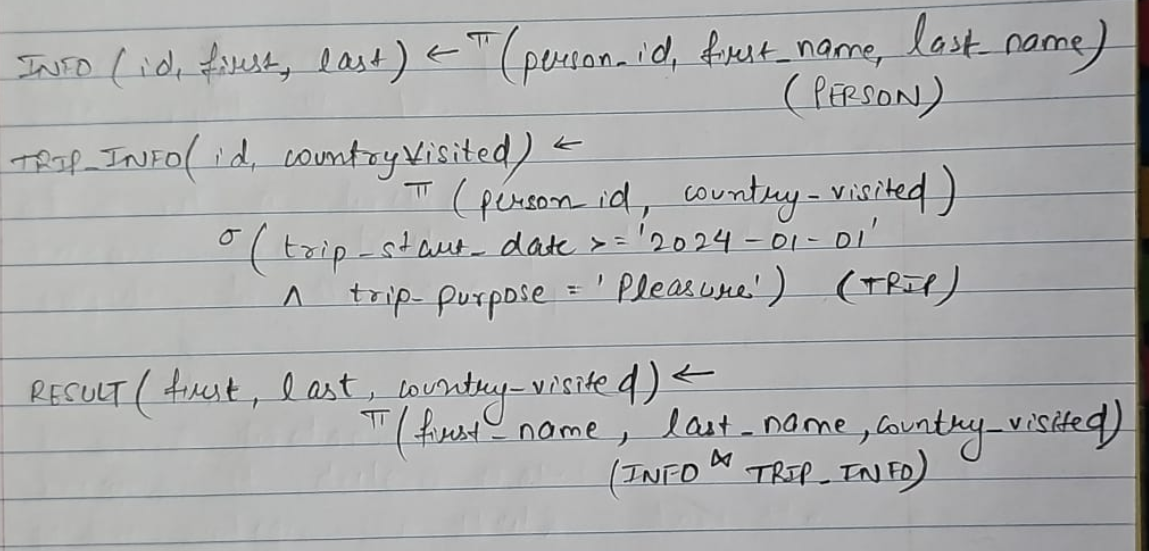 INFO (id, first, last) ← π (person_id, first_name, last_name)
(PERSON)
TRIP_INFO( id, countryVisited) ←
π (person_id, country-visited)
σ ( trip-start-date >= '2024-01-01'
∧ trip-purpose = 'Pleasure') (TRIP)
RESULT ( first, last, country-visited) ←
π (first-name, last_name, country_visited)
(INFO ⋈ TRIP_INFO)